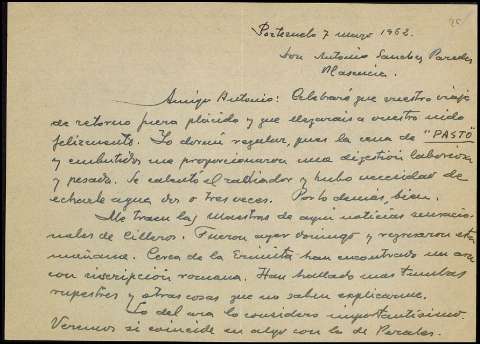 Portezuelo 7 marzo 1962.
Don Antonio Sanchez Paredes
Plasencia.
Amigo Antonio: Celebraré que vuestro viaje
de retorno fuera plácido y que llegarais a vuestro nido
felizmente. Yo dormí regular, pues la cena de "PASTO"
y embutidos me proporcionaron una digestión laboriosa
y pesada. Se calentó el radiador y hubo necesidad de
echarle agua dos o tres veces. Por lo demás, bien.
Me traen las Maestras de aquí noticias sensacio-
nales de Cilleros. Fueron ayer domingo y regresaron esta
mañana. Cerca de la Ermita han encontrado un ara
con inscripción romana. Han hallado mas tumbas
rupestres y otras cosas que no saben explicarme.
Lo del ara lo considero importantísimo.
Veremos si coincide en algo con la de Perales.